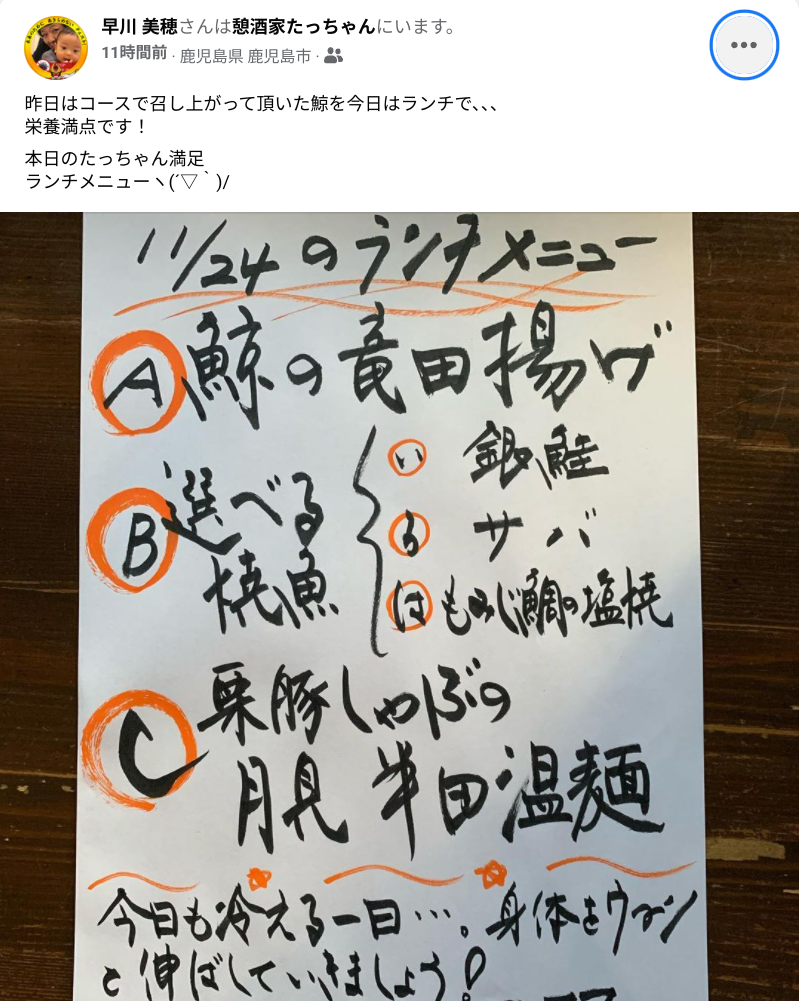 早川 美穂さんは憩酒家たっちゃんにいます。
11時間前 · 鹿児島県 鹿児島市 ·
昨日はコースで召し上がって頂いた鯨を今日はランチで､､､
栄養満点です！
本日のたっちゃん満足
ランチメニューヽ(´▽｀)/
11/24のランチメニュー
A 鯨の竜田揚げ
B 選べる焼魚
い 銀鮭
ろ サバ
は もみじ鯛の塩焼
C 栗豚しゃぶの
月見 半田温麺
今日も冷える一日…。身体をウーン
と伸ばしていきましょう!